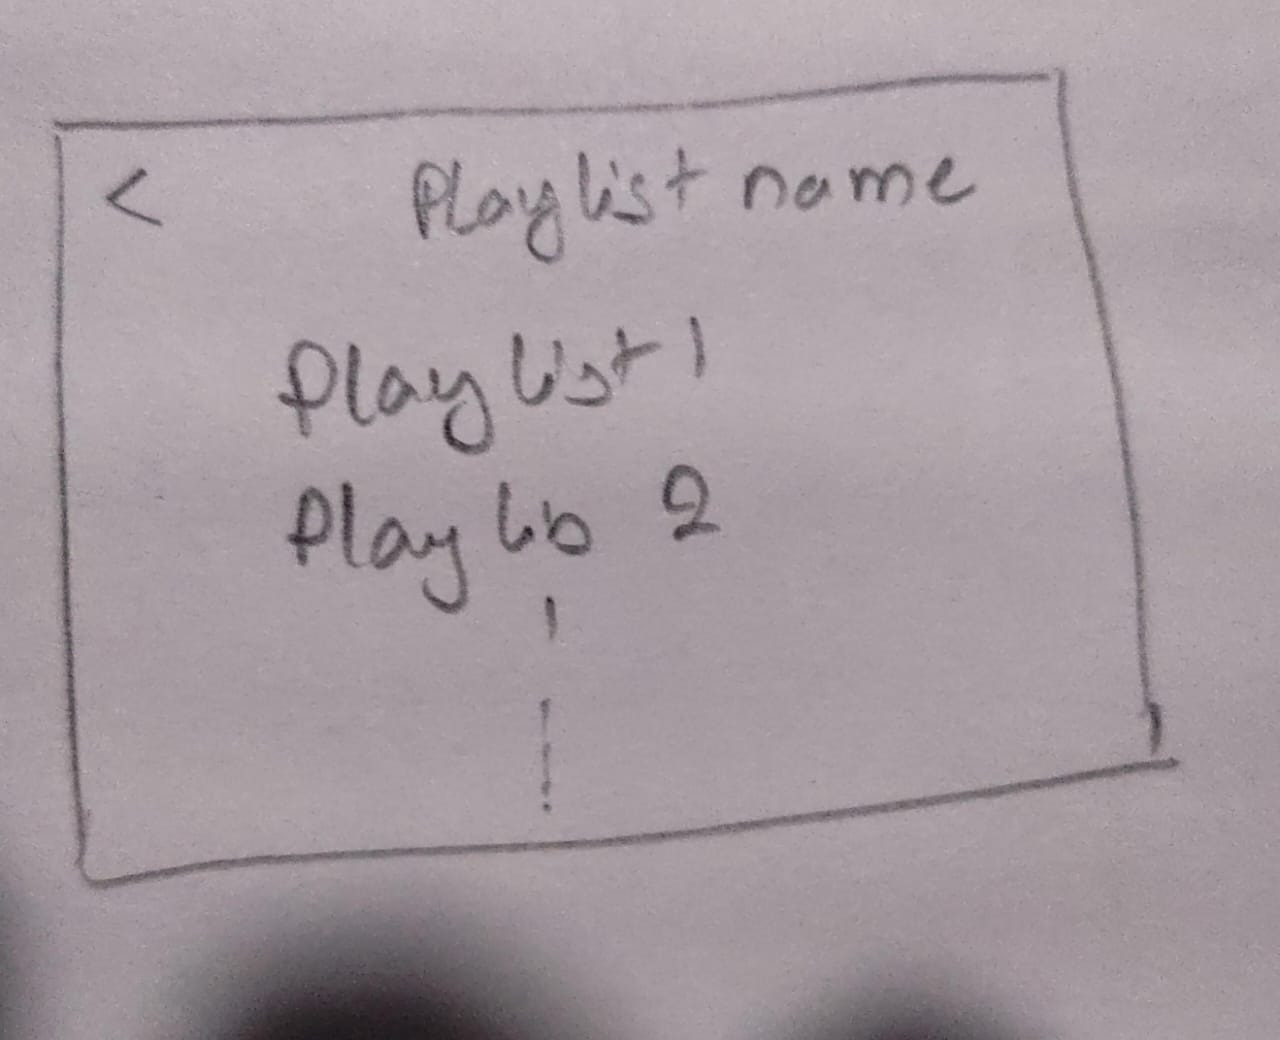 < Playlist name
Playlist 1
Playlis 2